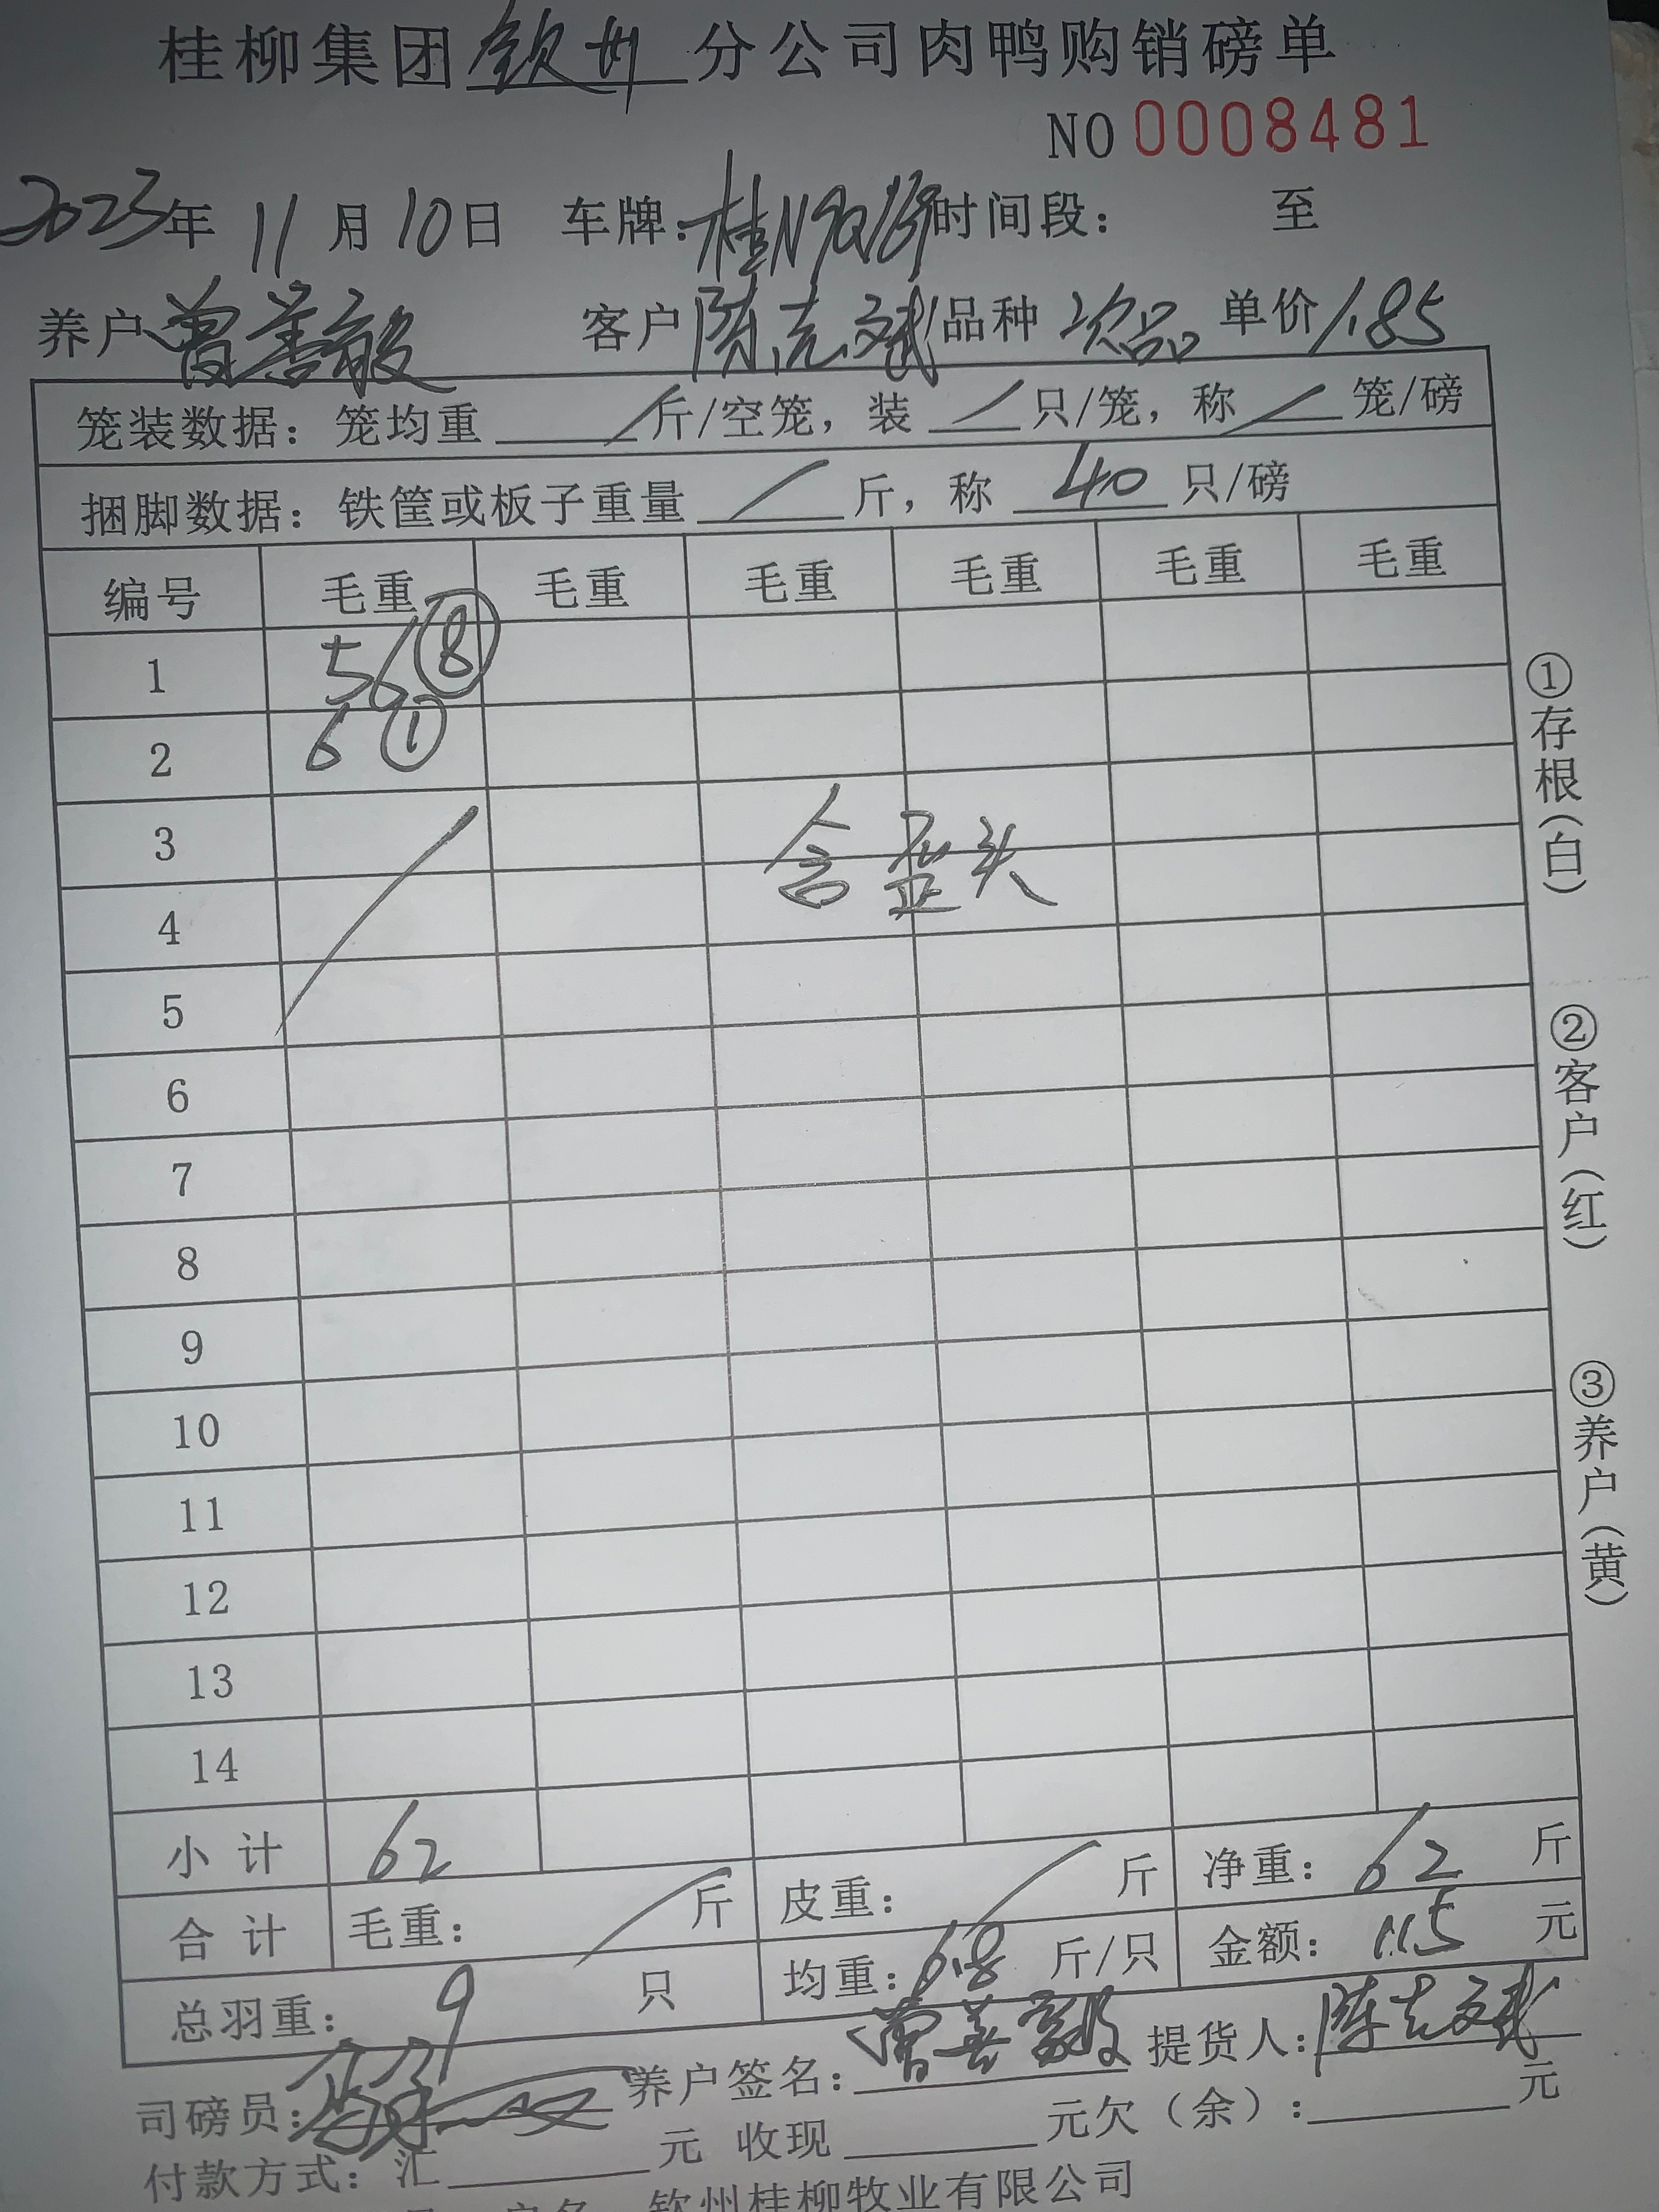 桂柳集团钦州分公司肉鸭购销磅单
NO 0008481
2023年 11月10日 车牌: 桂N 时间段: 至
养户 曾善毅 客户 陈克斌 品种 次品 单价 1.85
笼装数据: 笼均重 / 斤/空笼, 装 / 只/笼, 称 / 笼/磅
捆脚数据: 铁筐或板子重量 / 斤, 称 40 只/磅
编号 毛重 毛重 毛重 毛重 毛重 毛重
1 56 ⑧
2 6 ①
3 含歪头
4
5
6
7
8
9
10
11
12
13
14
小计 62
合计 毛重: / 斤 皮重: / 斤 净重: 62 斤
总羽重: 9 只 均重: 6.8 斤/只 金额: 115 元
司磅员: 养户签名: 曾善毅 提货人: 陈克斌
付款方式: 汇 元 收现 元欠(余): 元
户名 钦州桂柳牧业有限公司
①存根(白)
②客户(红)
③养户(黄)